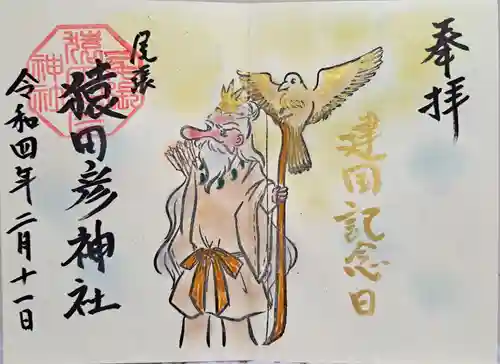 奉拝
建国記念日
尾張
猿田彦神社
令和四年二月十一日